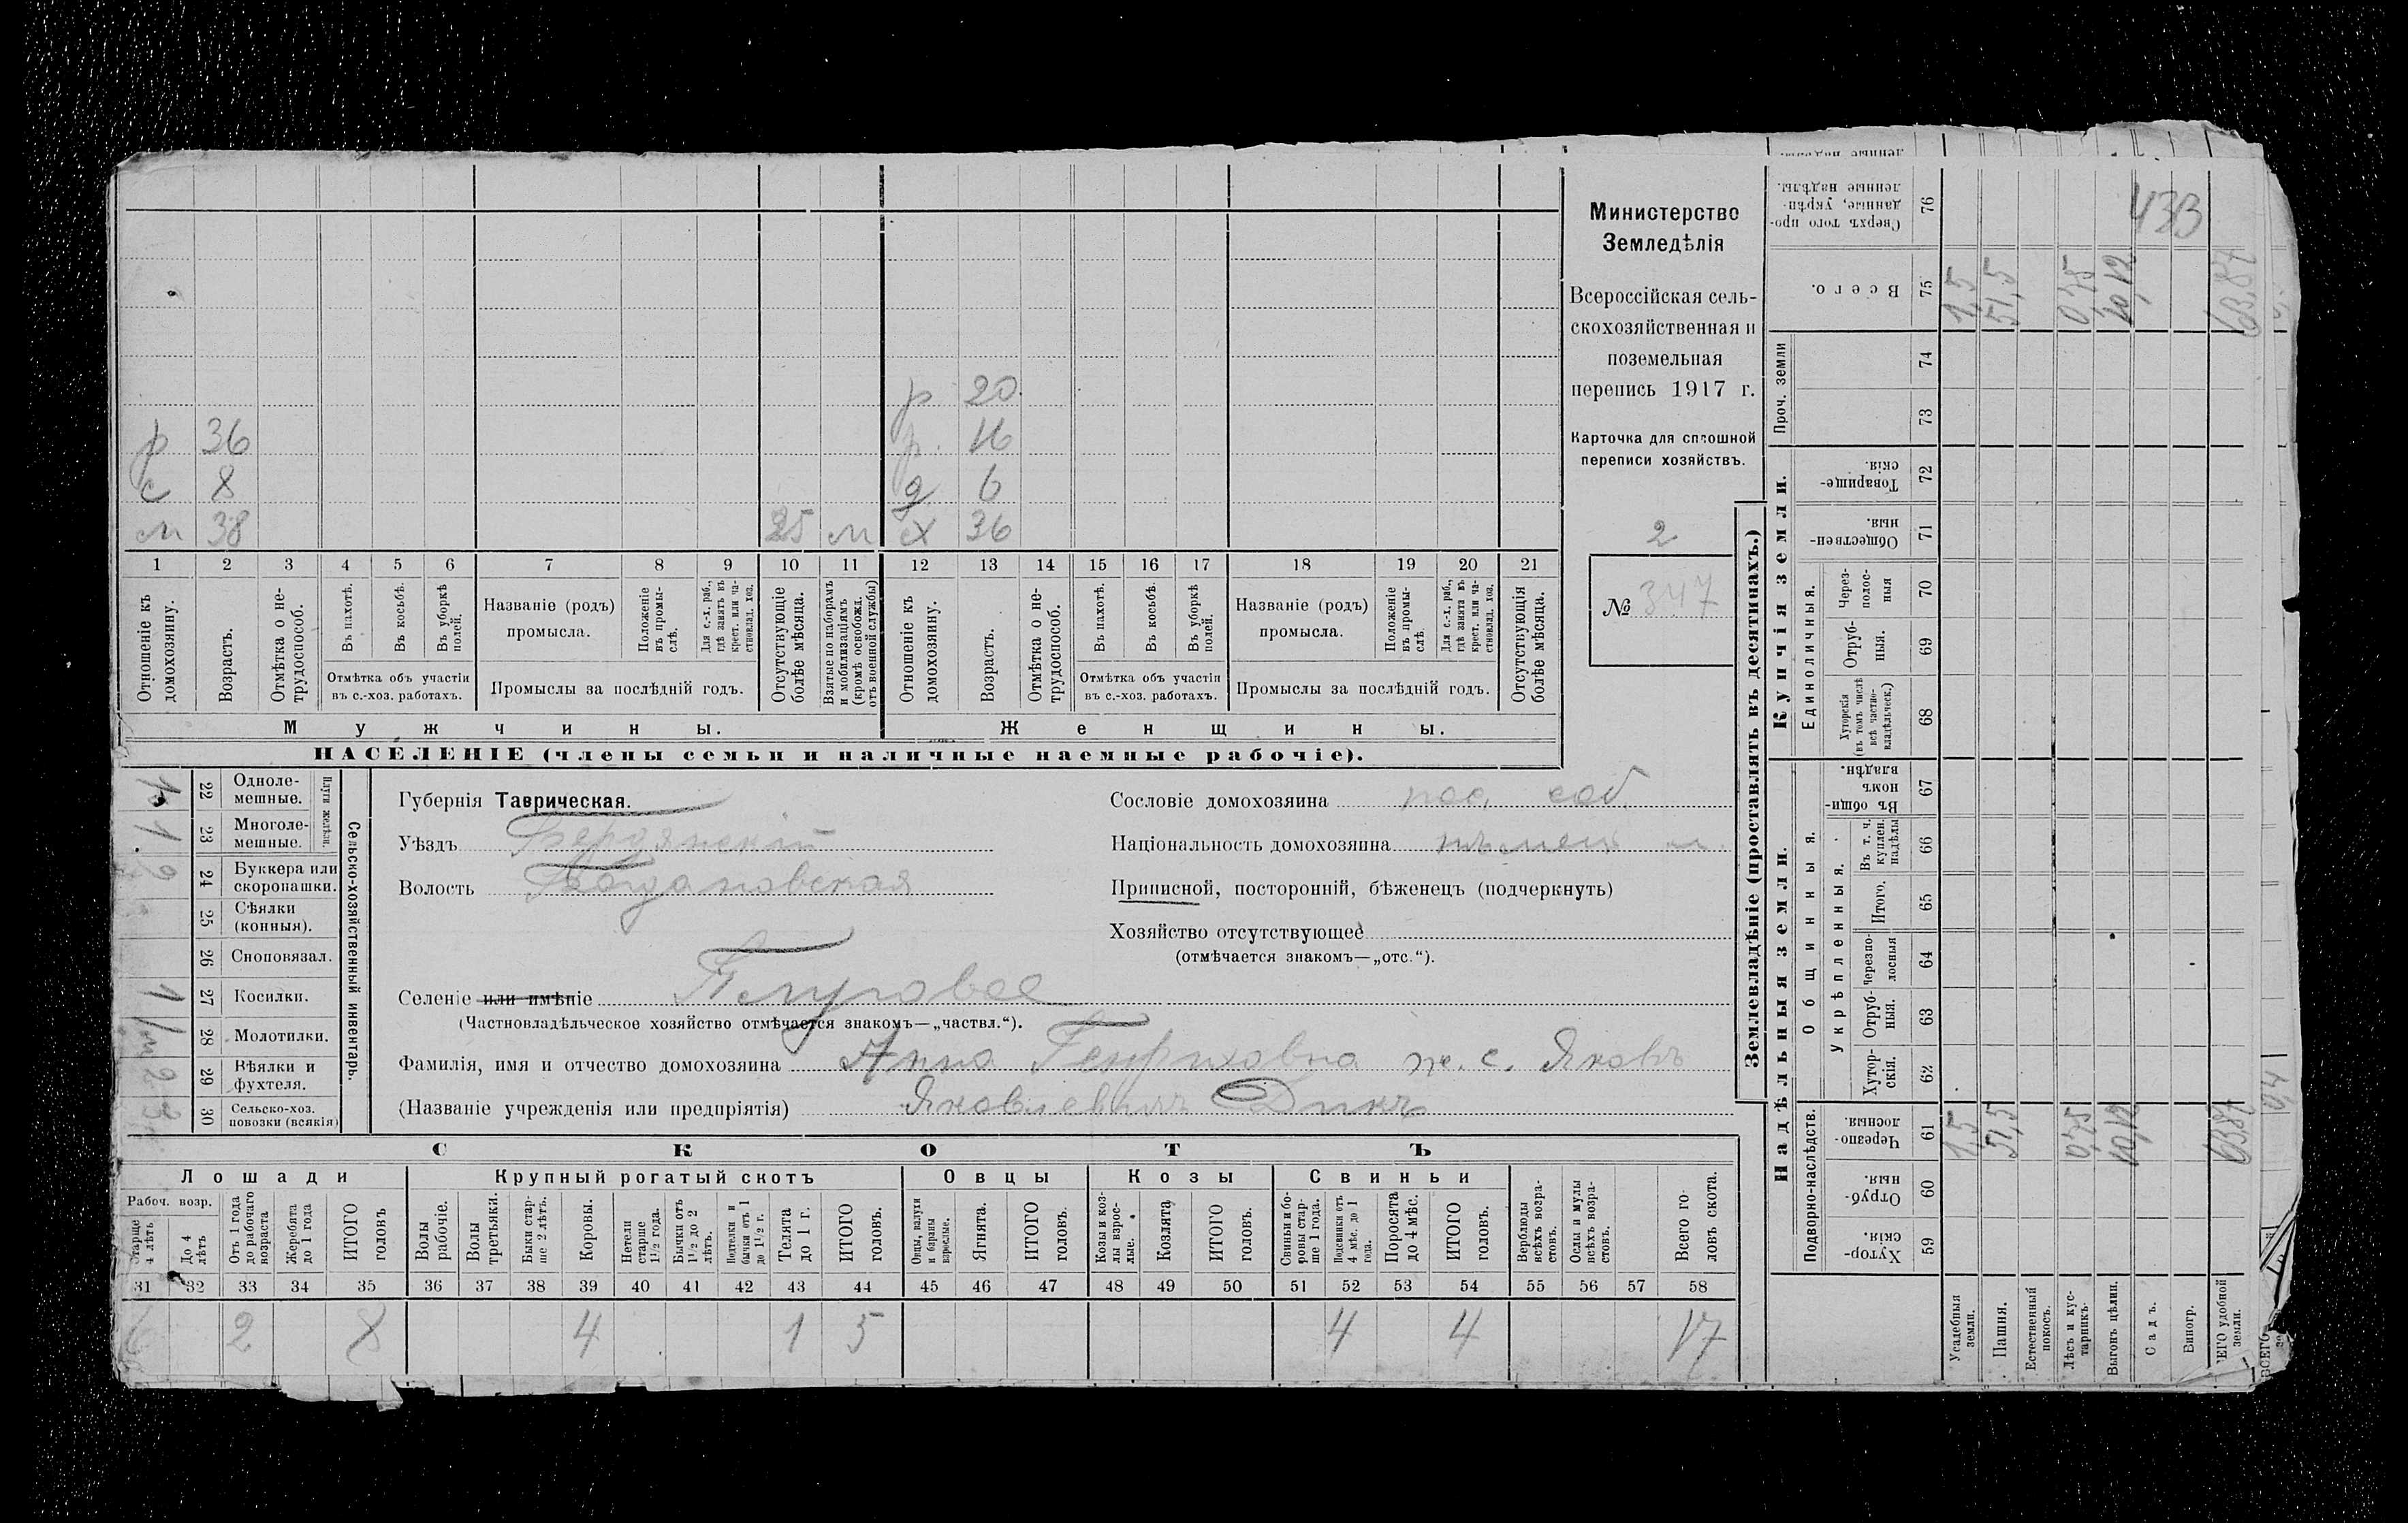 р 20
р 36 р. 16
с 8 д 6
м 38 25 м х 36
1 2 3 4 5 6 7 8 9 10 11 12 13 14 15 16 17 18 19 20 21
Отношеніе къ домохозяину.
Возрастъ.
Отмѣтка о не-трудоспособ.
Въ пахотѣ.
Въ косьбѣ.
Въ уборкѣ полей.
Отмѣтка объ участіи
въ с.-хоз. работахъ.
Названіе (родъ)
промысла.
Положеніе въ промы-слѣ.
Для с.-х. раб., гдѣ занятъ въ крест. или ча-стновлад. хоз.
Промыслы за послѣдній годъ.
Отсутствующіе болѣе мѣсяца.
Взятые по наборамъ и мобилизаціямъ (кромѣ освобожд. отъ военной службы)
Отношеніе къ домохозяину.
Возрастъ.
Отмѣтка о не-трудоспособ.
Въ пахотѣ.
Въ косьбѣ.
Въ уборкѣ полей.
Отмѣтка объ участіи
въ с.-хоз. работахъ.
Названіе (родъ)
промысла.
Положеніе въ промы-слѣ.
Для с.-х. раб., гдѣ занята въ крест. или ча-стновлад. хоз.
Промыслы за послѣдній годъ.
Отсутствующія болѣе мѣсяца.
Мужчины. Женщины.
НАСЕЛЕНІЕ (члены семьи и наличные наемные рабочіе).
Министерство
Земледѣлія
Всероссійская сель-
скохозяйственная и
поземельная
перепись 1917 г.
Карточка для сплошной
переписи хозяйствъ.
2
№ 347
Сельско-хозяйственный инвентарь.
Плуги желѣзн.
22 Одноле-мешные. 1
23 Многоле-мешные. 1
24 Буккера или скоропашки. 2
25 Сѣялки (конныя).
26 Сноповязал.
27 Косилки. 1
28 Молотилки.
29 Вѣялки и фухтеля. 2
30 Сельско-хоз. повозки (всякія) 3
Губернія Таврическая.
Уѣздъ Бердянскій
Волость Богдановская
Сословіе домохозяина пос. соб.
Національность домохозяина нѣмец м.
Приписной, посторонній, бѣженецъ (подчеркнуть)
Хозяйство отсутствующее
(отмѣчается знакомъ—„отс.“).
Селеніе или имѣніе
(Частновладѣльческое хозяйство отмѣчается знакомъ—„частвл.“).
Фамилія, имя и отчество домохозяина Анна Генриховна ж. с. Яковъ
(Названіе учрежденія или предпріятія) Яковлевичъ Дикъ
СКОТЪ
Лошади Крупный рогатый скотъ Овцы Козы Свиньи
Рабоч. возр.
Старше 4 лѣтъ
До 4 лѣтъ
Отъ 1 года до рабочаго возраста
Жеребята до 1 года
ИТОГО головъ
Волы рабочіе.
Волы третьяки.
Быки стар-ше 2 лѣтъ.
Коровы.
Нетели старше 1 1/2 года.
Бычки отъ 1 1/2 до 2 лѣтъ.
Нетелки и бычки отъ 1 до 1 1/2 г.
Телята до 1 г.
ИТОГО головъ.
Овцы, валухи и бараны взрослые.
Ягнята.
ИТОГО головъ.
Козы и коз-лы взрос-лые.
Козлята
ИТОГО головъ.
Свиньи и бо-ровы стар-ше 1 года.
Подсвинки отъ 4 мѣс. до 1 года.
Поросята до 4 мѣс.
ИТОГО головъ.
Верблюды всѣхъ возра-стовъ.
Ослы и мулы всѣхъ возра-стовъ.
Всего го-ловъ скота.
31 32 33 34 35 36 37 38 39 40 41 42 43 44 45 46 47 48 49 50 51 52 53 54 55 56 57 58
6 2 8 4 1 5 4 4 17
Землевладѣніе (проставлять въ десятинахъ.)
Надѣльныя земли. Купчія земли. Проч. земли
Подворно-наслѣдств. Общинныя. Единоличныя.
Укрѣпленныя.
Хутор-скія. 59
Отруб-ныя. 60
Черезпо-лосныя. 61
Хутор-скія. 62
Отруб-ныя. 63
Черезпо-лосныя 64
Итого. 65
Въ т. ч. куплен. надѣлы 66
Въ общи-номъ владѣн. 67
Хуторскія (въ томъ числѣ всѣ частно-владѣльческ.) 68
Отруб-ныя. 69
Через-полос-ныя 70
Обществен-ныя. 71
Товарище-скія. 72
73
74
Всего. 75
Сверхъ того про-данные, укрѣп-ленные надѣлы. 76
433
Усадебныя земли. 1,5 1,5
Пашня. 51,5 51,5
Естественный покосъ.
Лѣсъ и кус-тарникъ. 0,75 0,75
Выгонъ цѣлин. 10,12 10,12
Садъ.
Виногр.
ВСЕГО удобной земли. 63,87 63,87